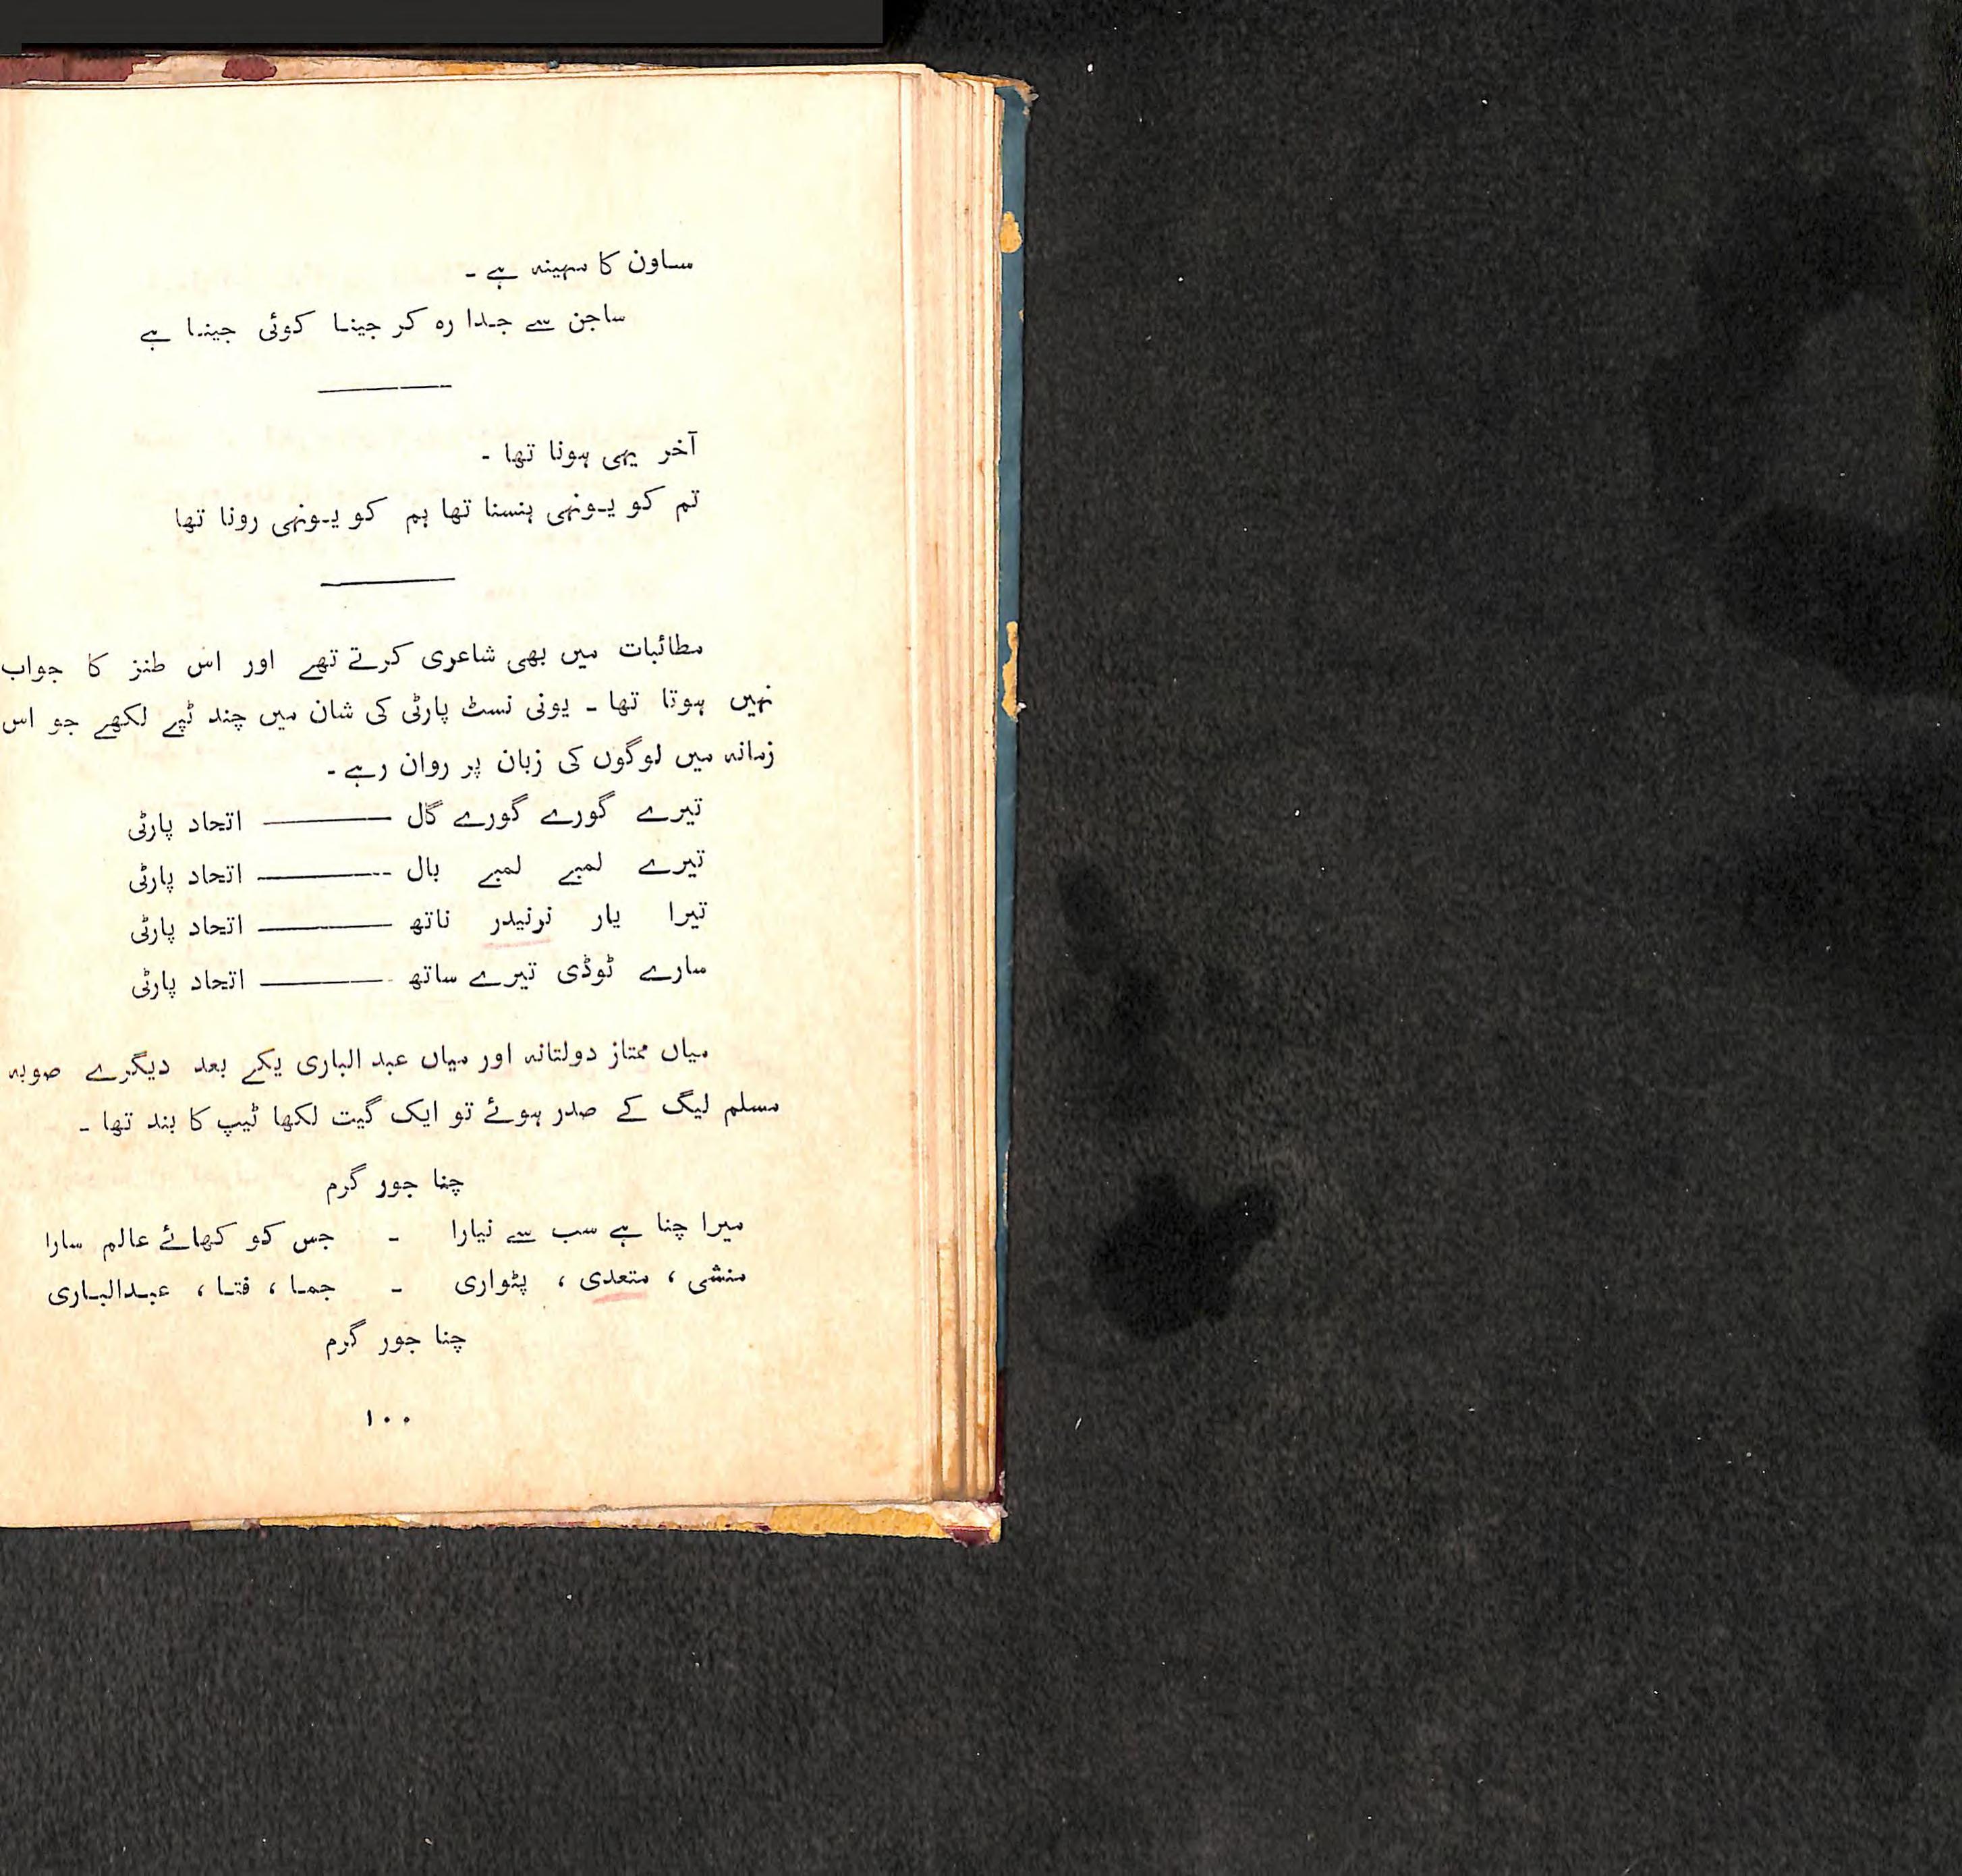 ساون کا مہینہ ہے ۔
ساجن سے جدا رہ کر جینا کوئی جینا ہے
آخر یہی ہونا تھا ۔
تم کو یونہی ہنسنا تھا ہم کو یونہی رونا تھا
مطائبات میں بھی شاعری کرتے تھے اور اس طنز کا جواب
نہیں ہوتا تھا ۔ یونی نسٹ پارٹی کی شان میں چند ٹپے لکھے جو اس
زمانہ میں لوگوں کی زبان پر روان رہے ۔
تیرے گورے گورے گال ——— اتحاد پارٹی
تیرے لمبے لمبے بال ——— اتحاد پارٹی
تیرا یار نرنیدر ناتھ ——— اتحاد پارٹی
سارے ٹوڈی تیرے ساتھ ——— اتحاد پارٹی
میاں ممتاز دولتانہ اور میاں عبد الباری یکے بعد دیگرے صوبہ
مسلم لیگ کے صدر ہوئے تو ایک گیت لکھا ٹیپ کا بند تھا ۔
چنا جور گرم
میرا چنا ہے سب سے نیارا ۔ جس کو کھائے عالم سارا
منشی ، متعدی ، پٹواری ۔ جما ، فتا ، عبدالباری
چنا جور گرم
۱۰۰